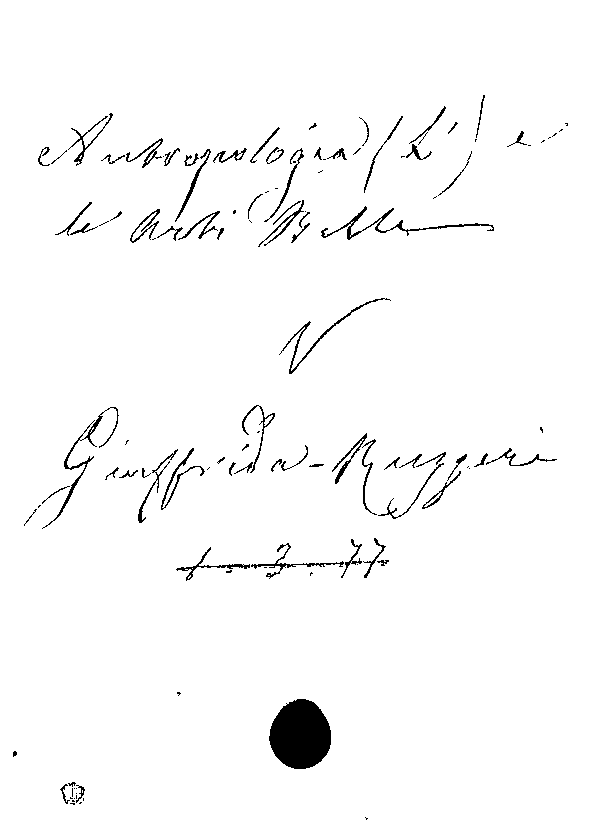 Antropologia (L') e
le Arti Belle
V
Giuffrida-Ruggeri
1.3.77